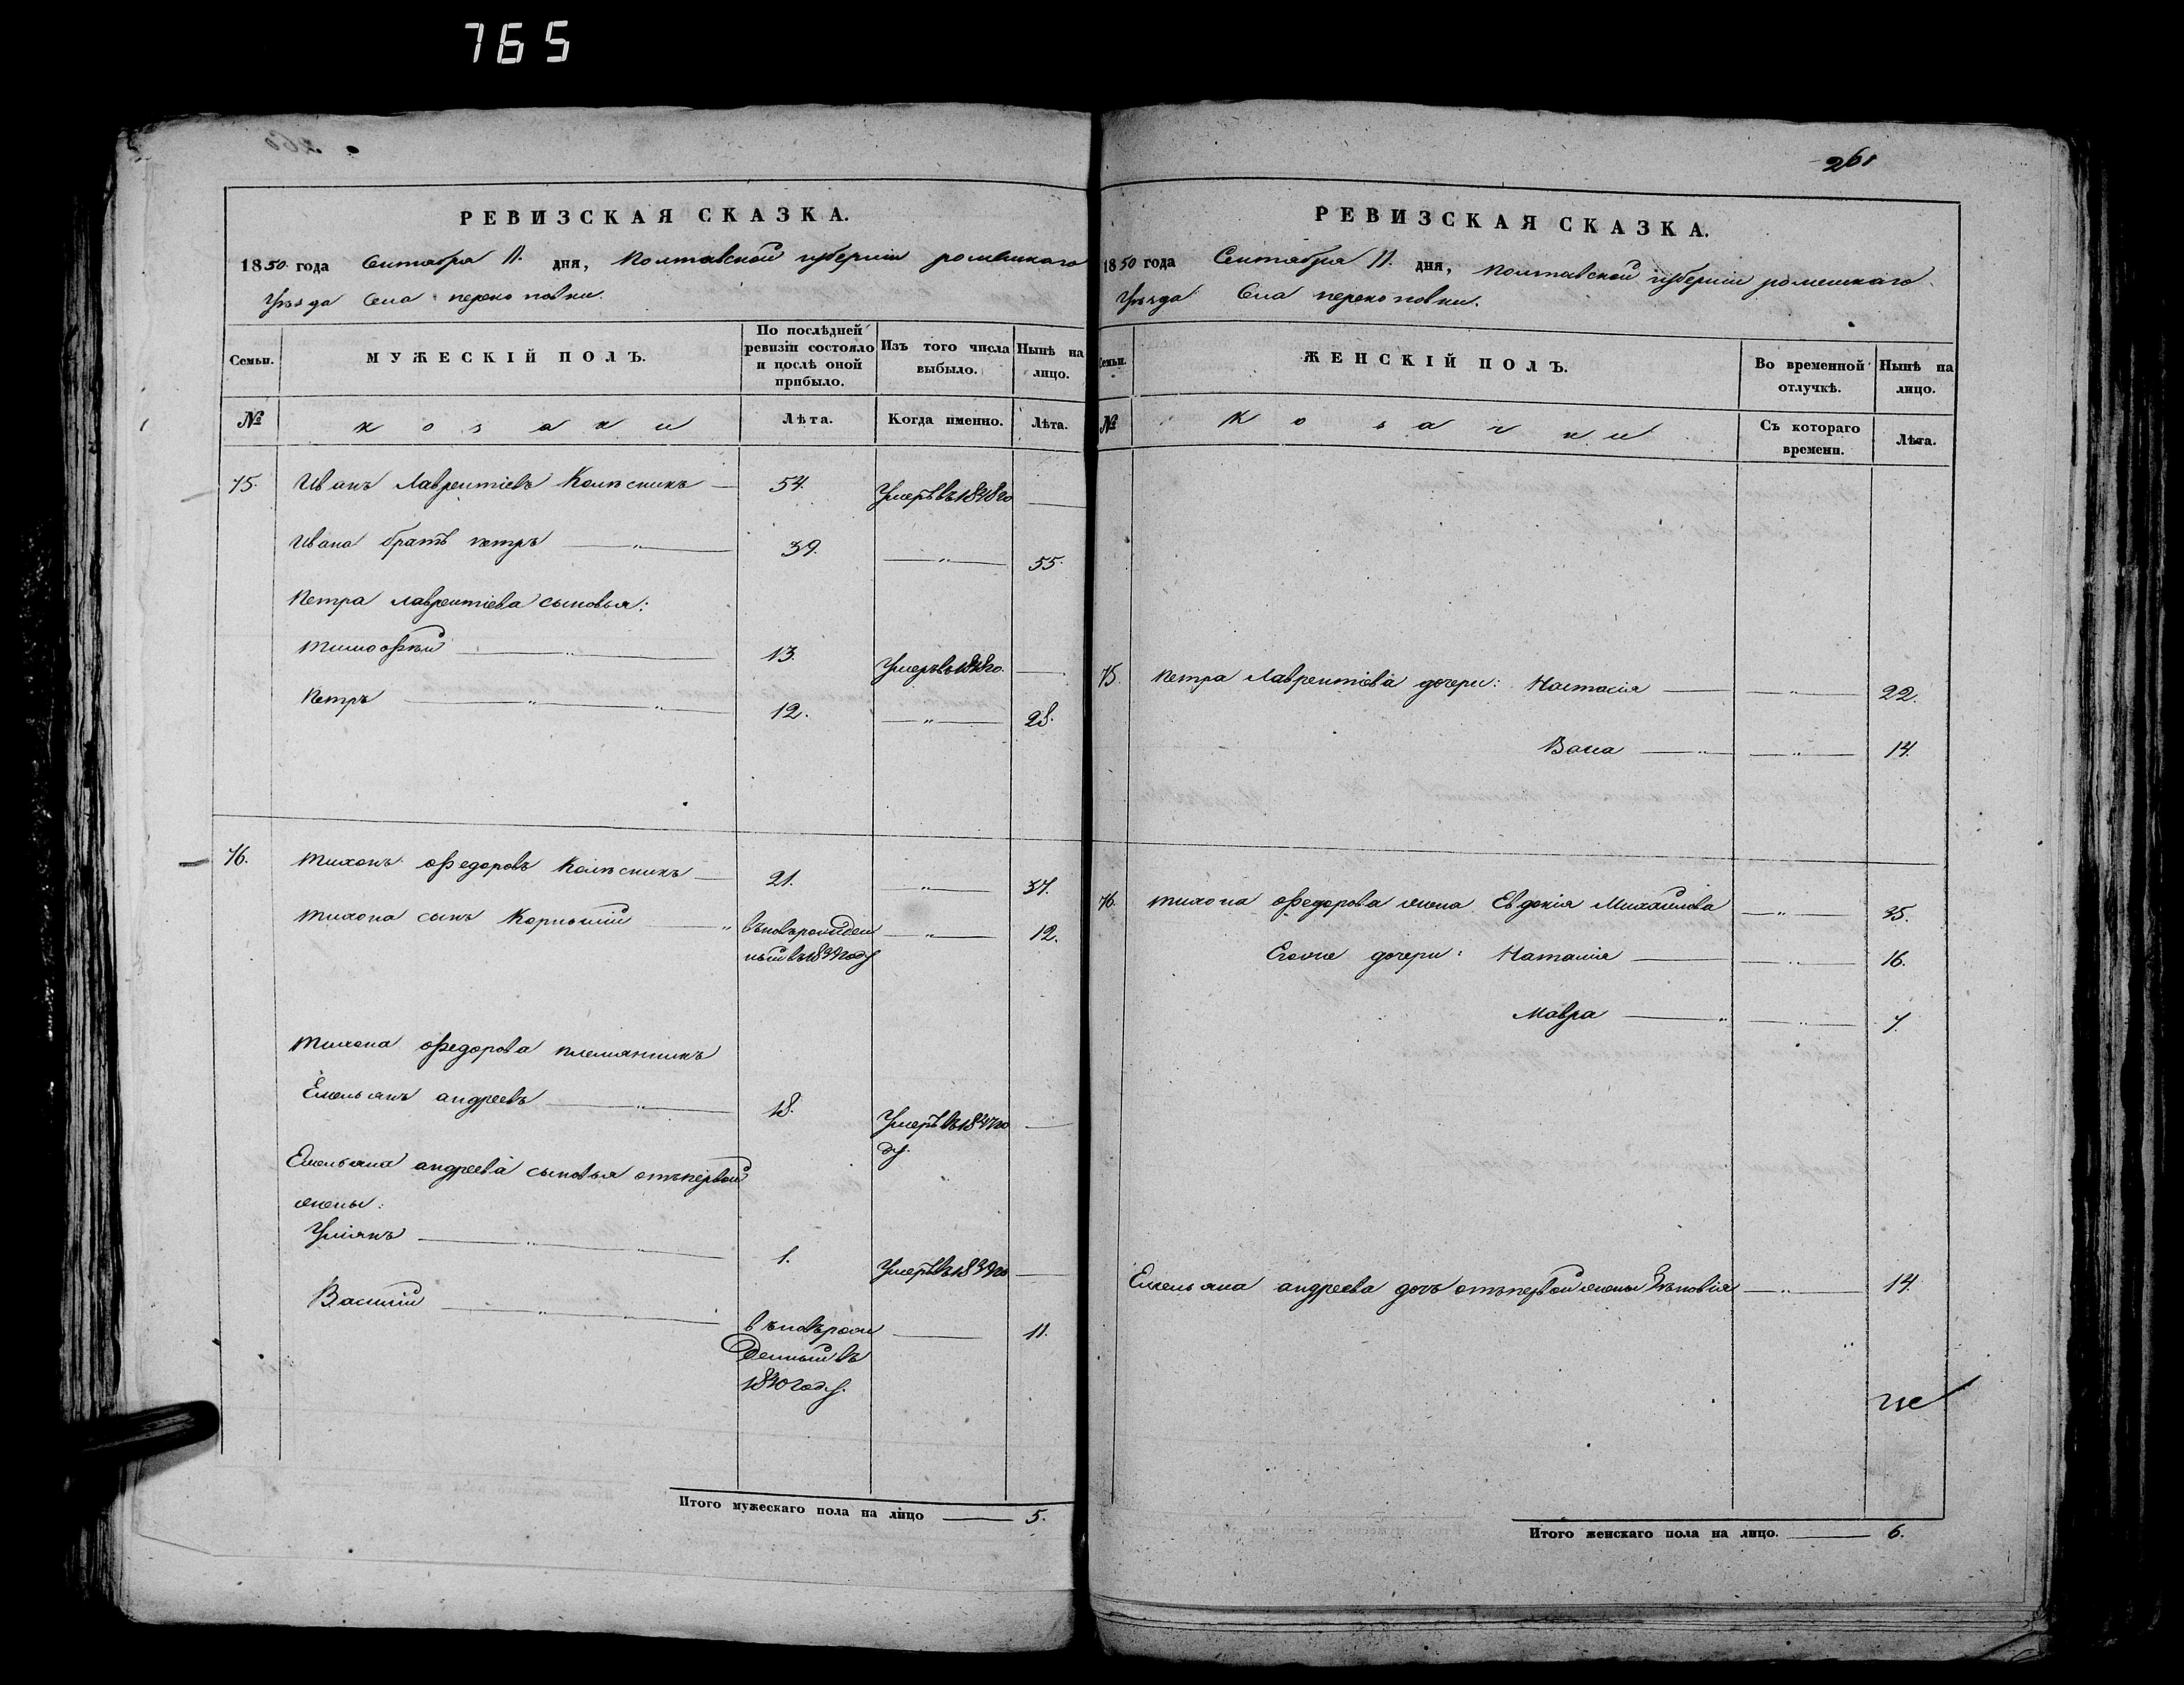 765
260
РЕВИЗСКАЯ СКАЗКА.
1850 года Сентября 11. дня, Полтавской губерніи роменскаго
Уѣзда Села перекоповки.
Семьи. МУЖЕСКІЙ ПОЛЪ. По послѣдней ревизіи состояло и послѣ оной прибыло. Изъ того числа выбыло. Нынѣ на лицо.
№ козаки Лѣта. Когда именно. Лѣта.
75. Иванъ Лаврентіевъ Колѣсникъ — 54. Умеръ въ 1848 го —
Ивана братъ петръ — „ — 39. — „ — 55.
Петра Лаврентіева сыновья:
Тимофѣй — „ — 13. Умеръ въ 1848 го. —
Петръ — „ — „ — 12. — „ — 28.
76. Тихонъ Федоровъ Колѣсникъ — 21. — „ — 37.
Тихона сынъ Корнилій — „ вновьрожден — „ — 12.
ный въ 1839 году
Тихона Федорова племянникъ
Емельянъ андреевъ — „ — 18. Умеръ въ 1847 го —
ду.
Емельяна андреева сыновья отъ первой
жены:
Уліянъ — „ — „ — 1. Умеръ въ 1839 го —
Василій — „ — вновьрож — 11.
денный въ
1840 году.
Итого мужескаго пола на лицо — 5.
261
РЕВИЗСКАЯ СКАЗКА.
1850 года Сентября 11. дня, Полтавской губерніи роменскаго
Уѣзда Села перекоповки.
Семьи. ЖЕНСКІЙ ПОЛЪ. Во временной отлучкѣ. Нынѣ на лицо.
№ Козачки Съ котораго времени. Лѣта.
75. Петра Лаврентіева дочери: Настасія — — „ — 22.
Васса — „ — „ — 14.
76. Тихона Федорова жена Евдокія Михайлова — „ — 35.
Егоже дочери: Наталія — — „ — 16.
Мавра — „ — „ — 7.
Емельяна андреева дочь отъ первой жены Зѣновія — „ — 14.
Итого женскаго пола на лицо. — 6.